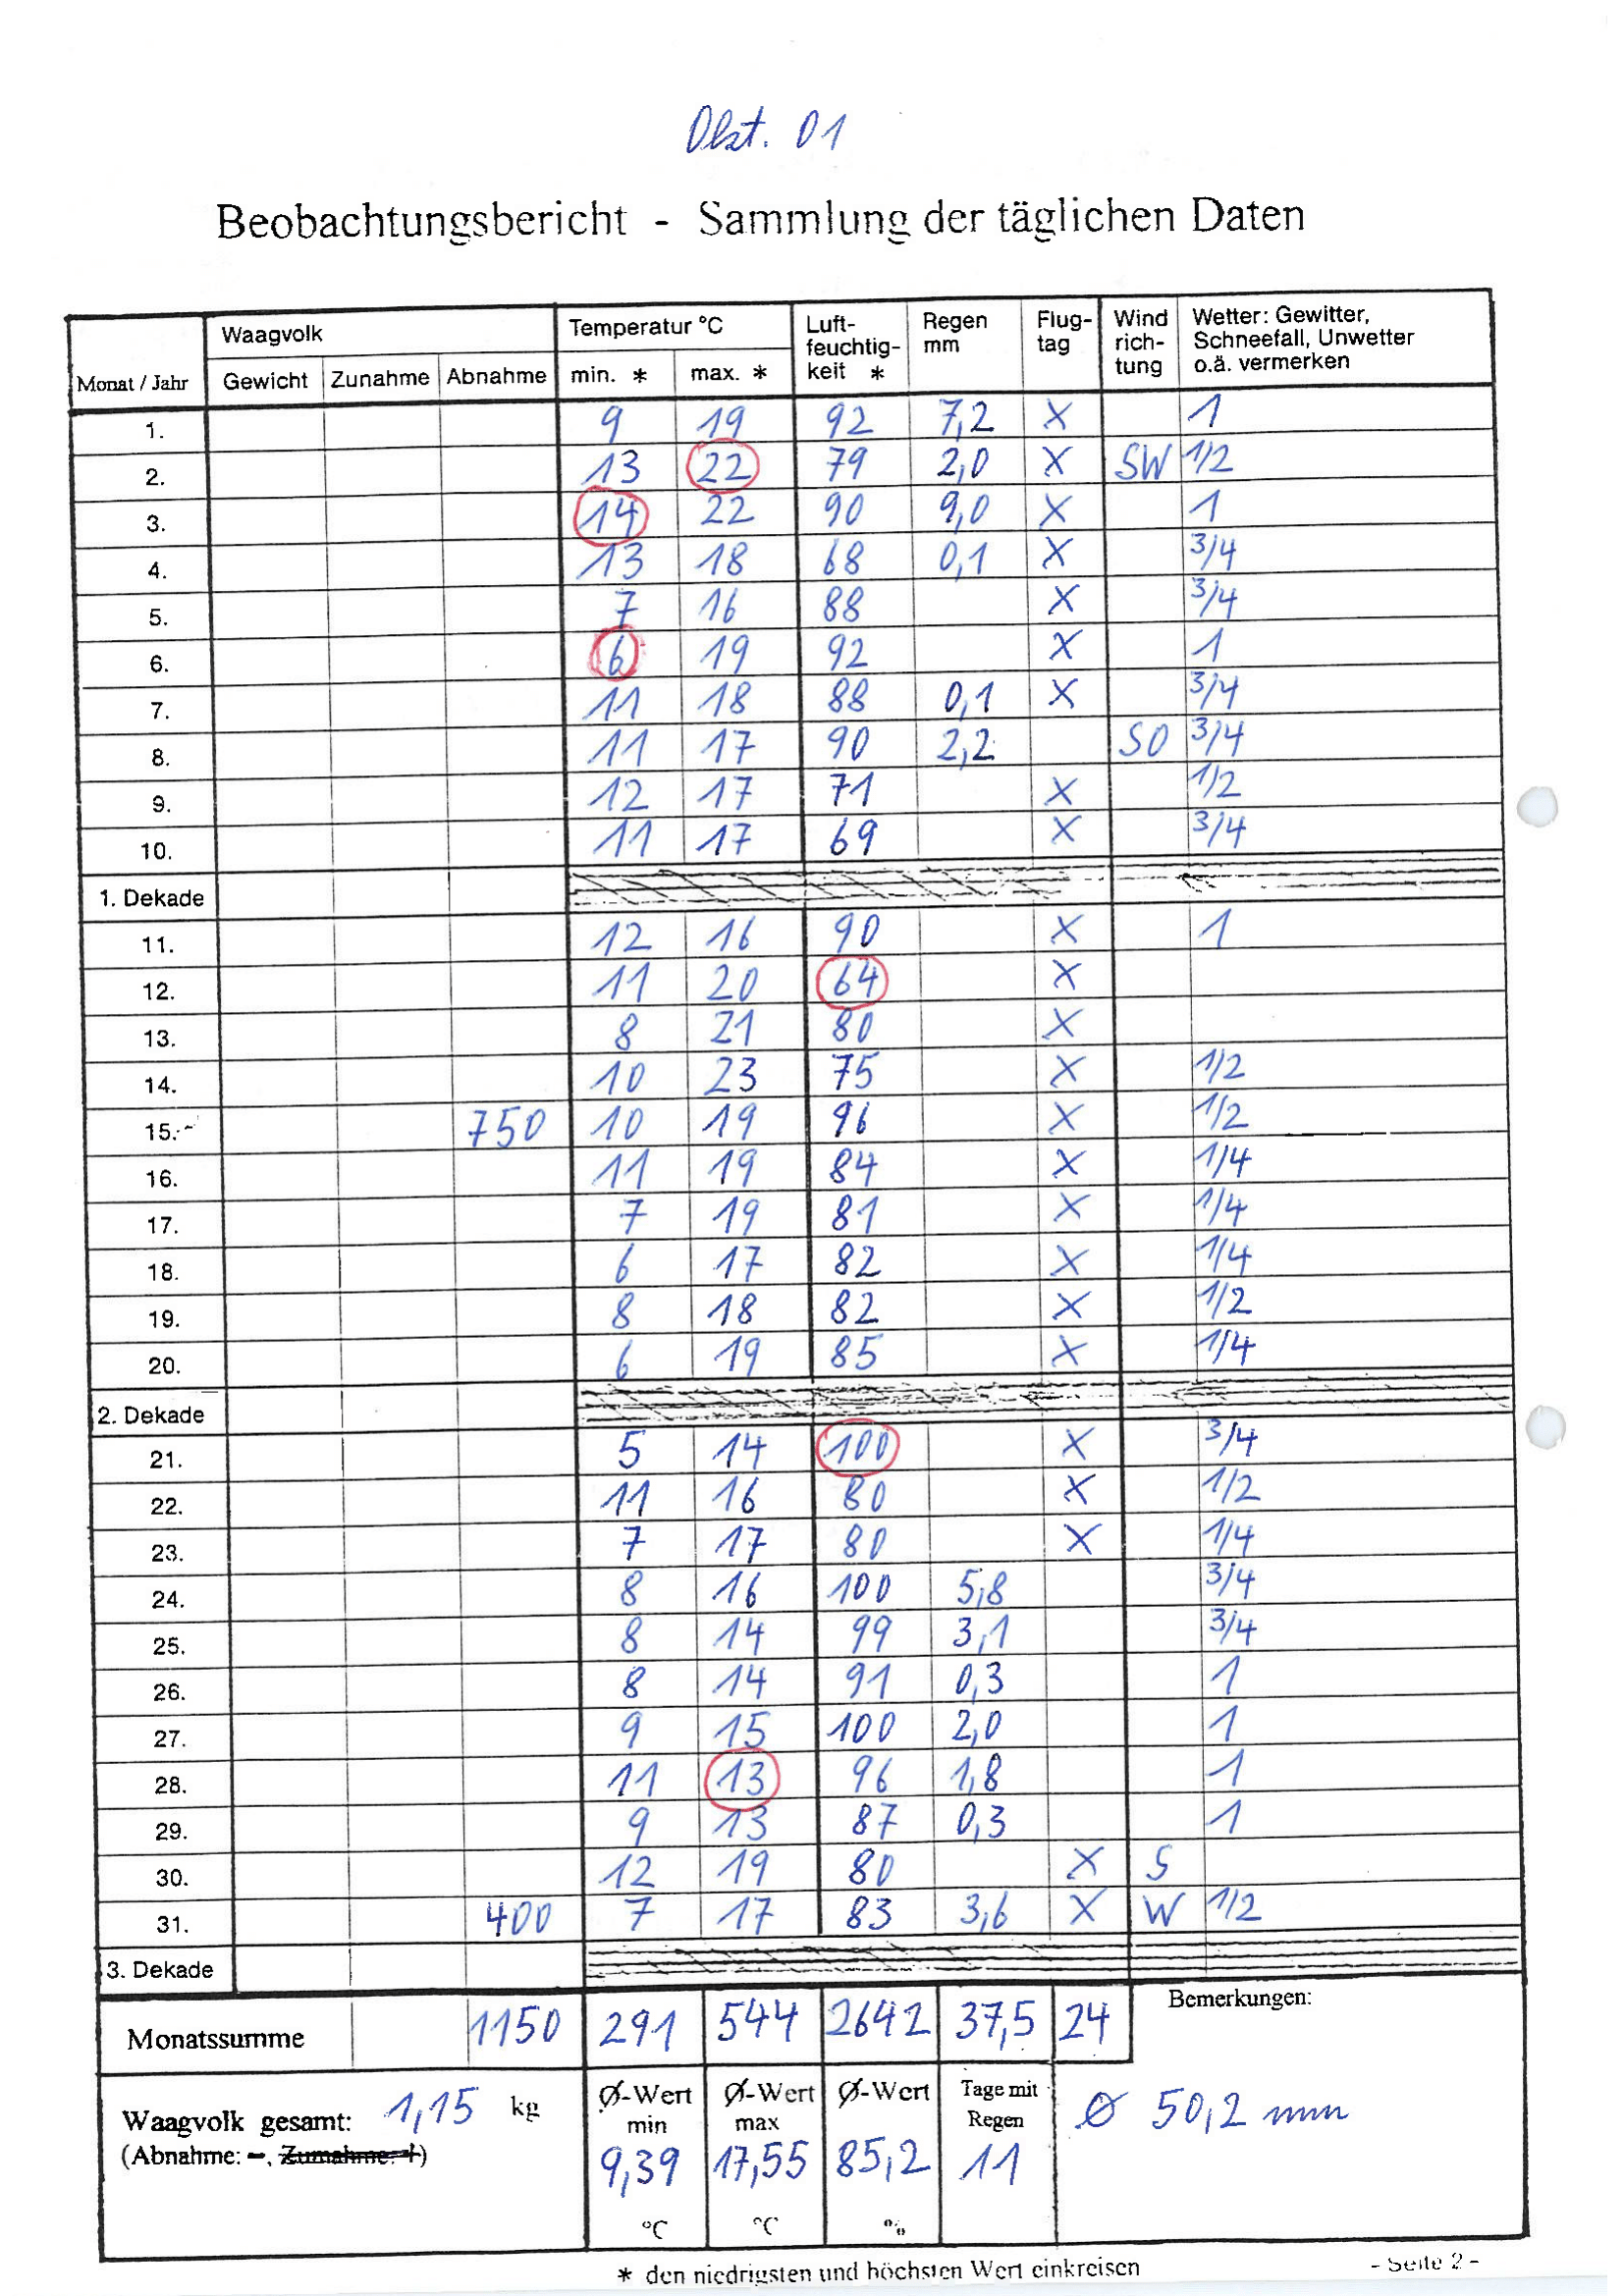 Okt. 01
Beobachtungsbericht - Sammlung der täglichen Daten
Monat / Jahr Waagvolk Temperatur °C Luft-feuchtig-keit * Regen mm Flug-tag Wind rich-tung Wetter: Gewitter, Schneefall, Unwetter o.ä. vermerken
Gewicht Zunahme Abnahme min. * max. *
1. 9 19 92 7,2 X 1
2. 13 22 79 2,0 X SW 1/2
3. 14 22 90 9,0 X 1
4. 13 18 68 0,1 X 3/4
5. 7 16 88 X 3/4
6. 6 19 92 X 1
7. 11 18 88 0,1 X 3/4
8. 11 17 90 2,2 SO 3/4
9. 12 17 71 X 1/2
10. 11 17 69 X 3/4
1. Dekade
11. 12 16 90 X 1
12. 11 20 64 X
13. 8 21 80 X
14. 10 23 75 X 1/2
15. 750 10 19 96 X 1/2
16. 11 19 84 X 1/4
17. 7 19 81 X 1/4
18. 6 17 82 X 1/4
19. 8 18 82 X 1/2
20. 6 19 85 X 1/4
2. Dekade
21. 5 14 100 X 3/4
22. 11 16 80 X 1/2
23. 7 17 80 X 1/4
24. 8 16 100 5,8 3/4
25. 8 14 99 3,1 3/4
26. 8 14 91 0,3 1
27. 9 15 100 2,0 1
28. 11 13 96 1,8 1
29. 9 13 87 0,3 1
30. 12 19 80 X S
31. 400 7 17 83 3,6 X W 1/2
3. Dekade
Monatssumme 1150 291 544 2642 37,5 24 Bemerkungen:
Waagvolk gesamt: 1,15 kg Ø-Wert min Ø-Wert max Ø-Wert Tage mit Regen Ø 50,2 mm
(Abnahme: -, Zunahme: +) 9,39 17,55 85,2 11
°C °C %
* den niedrigsten und höchsten Wert einkreisen - Seite 2 -